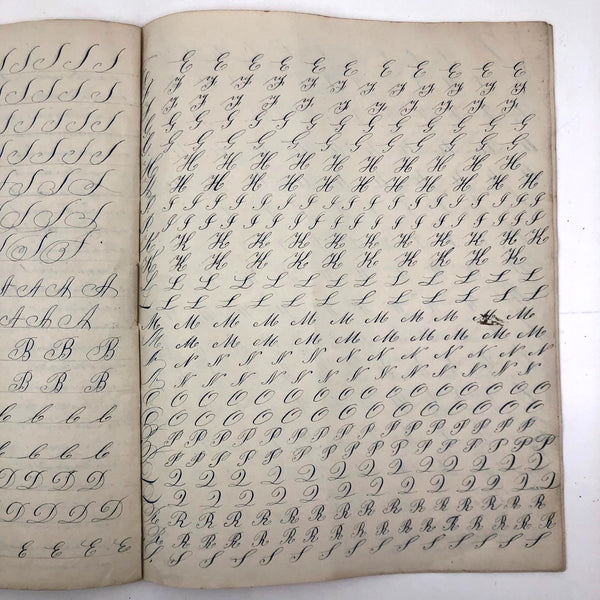 S S S S S
S S S S S
S S S S S
S S S S S
S S S
S S S
S S S
A A A A
A A A
B B B
B B B
C C C C
C C C C
D D D D
D D D D
E E E E
E E E E E E E E E
F F F F F F F F F F F
F F F F F F F F F F F
G G G G G G G G G G G G G
G G G G G G G G G G G G G
H H H H H H H H H H
H H H H H H H H H H
I I I I I I I I I I I I I I I I I I I I
I I I I I I I I I I I I I I I I I I I I
K K K K K K K K K K K
K K K K K K K K K K
L L L L L L L L L L L L
L L L L L L L L L L L L
M M M M M M M M M
M M M M M M M M M M
N N N N N N N N N N N N
N N N N N N N N N N N N
O O O O O O O O O O O O O O
O O O O O O O O O O O O O O
P P P P P P P P P P P P P P P P P P
P P P P P P P P P P P P P P P P P P
Q Q Q Q Q Q Q Q Q Q Q Q
Q Q Q Q Q Q Q Q Q Q Q Q
R R R R R R R R R R R R R R R
R R R R R R R R R R R R R R R
S S S S S S S S S S S S S